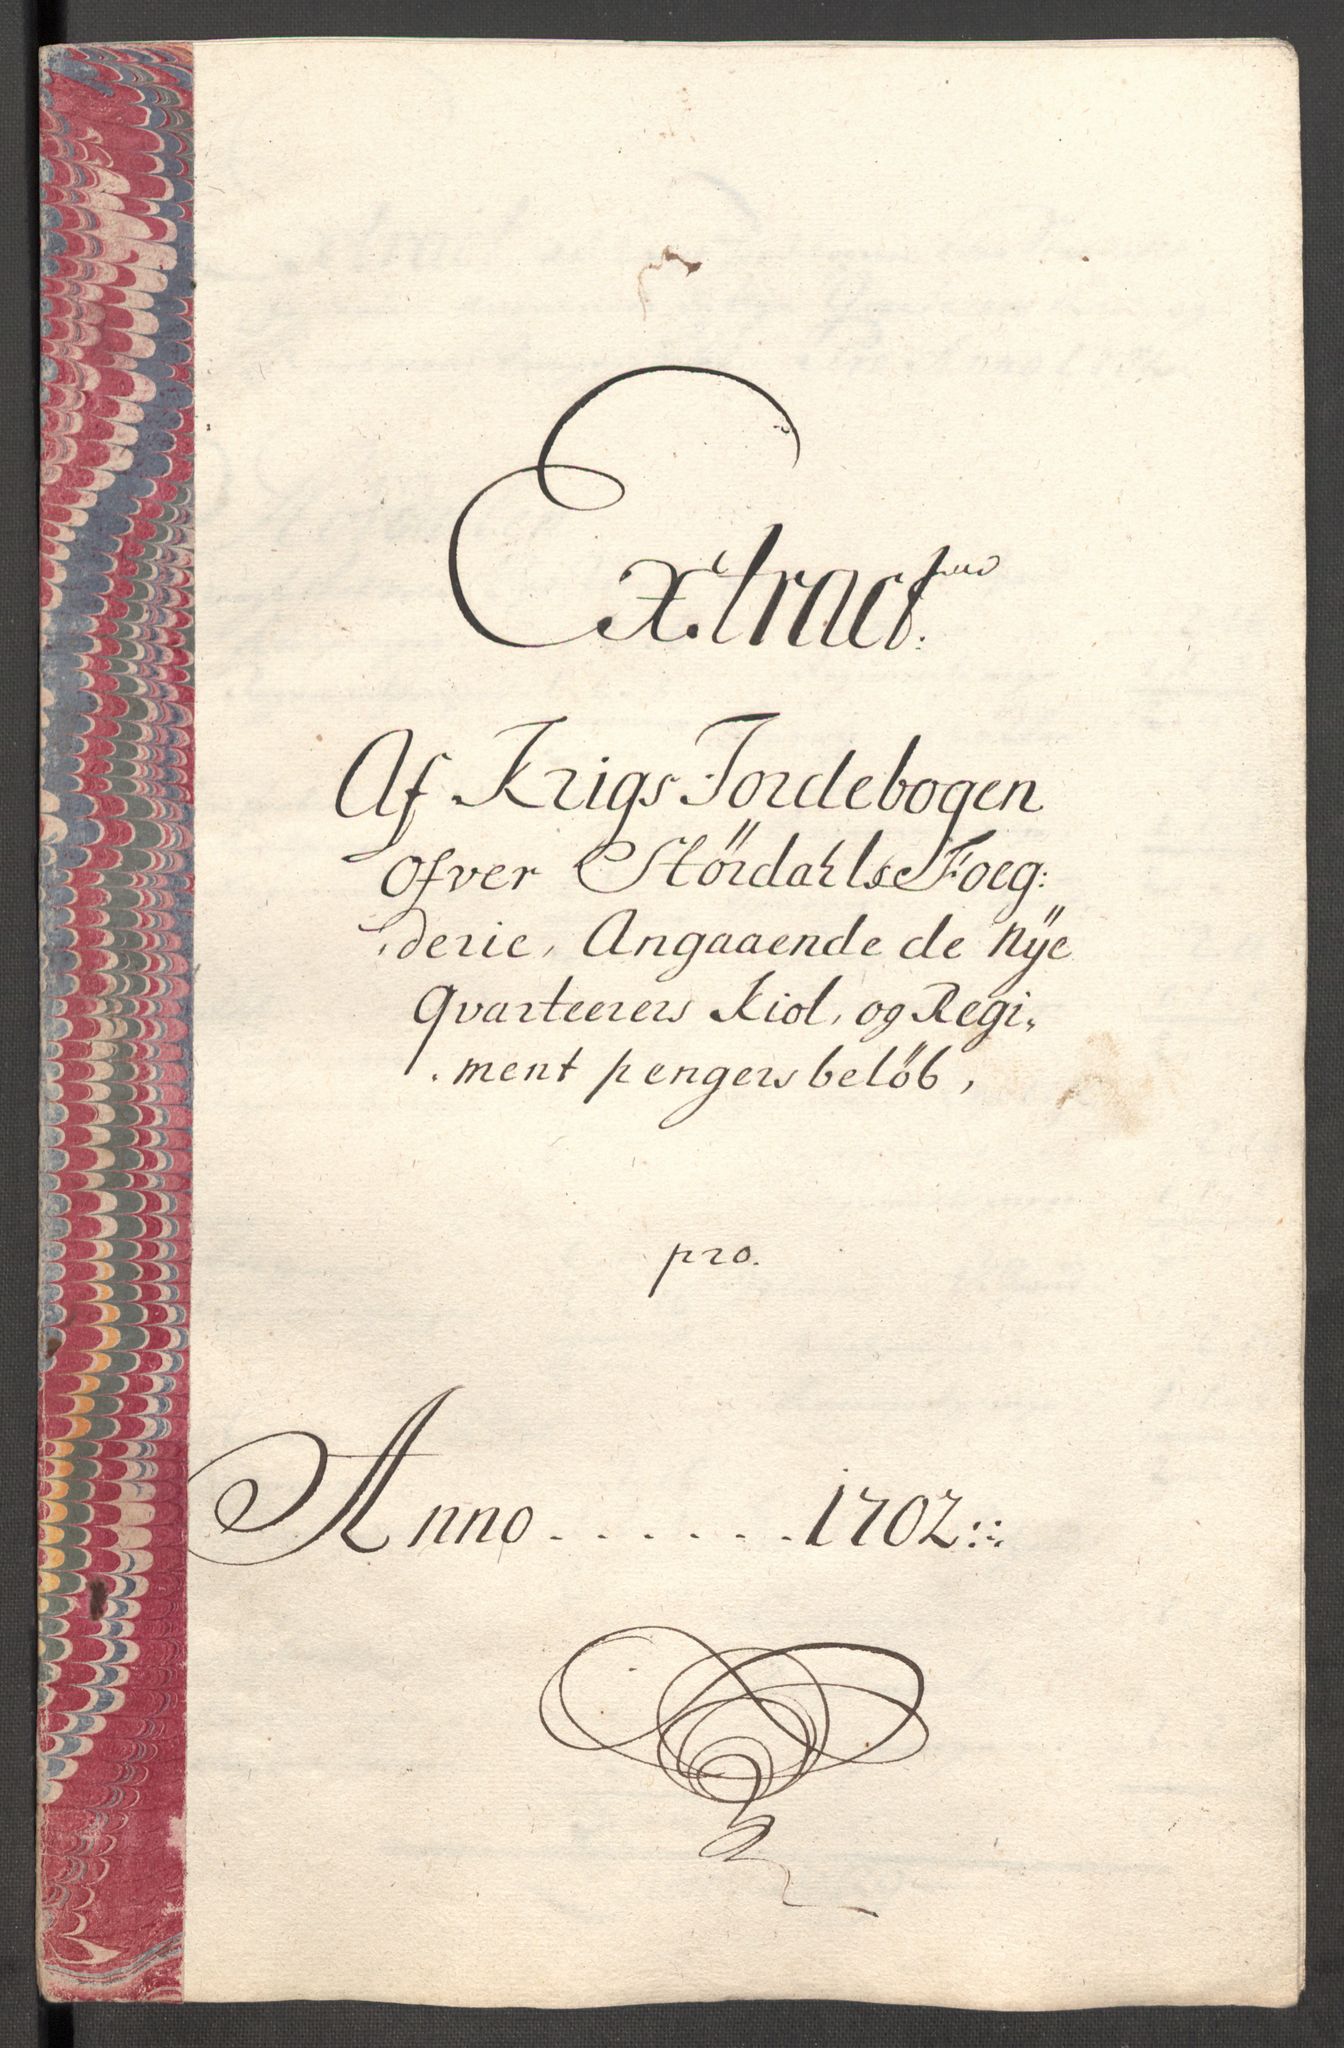 Extract
Af Krigs Jordebogen
ofver Størdahls Foeg:
derie, Angaaende de nÿe
Qvarteerers Kiol, og Regi,
ment pengers beløb,
pro.
Anno . . . . . . 1702